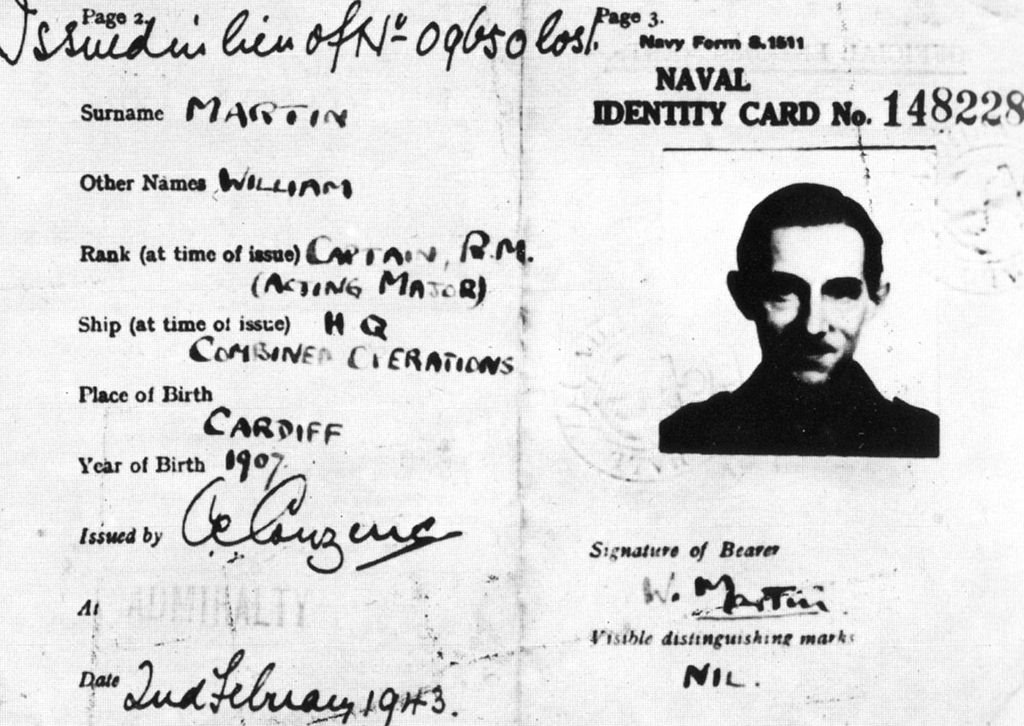 Page 2.
Issued in lieu of No 09650 lost.
Surname MARTIN
Other Names WILLIAM
Rank (at time of issue) CAPTAIN, R.M.
(ACTING MAJOR)
Ship (at time of issue) H Q
COMBINED OPERATIONS
Place of Birth
CARDIFF
Year of Birth 1907
Issued by
At ADMIRALTY
Date 2nd February 1943.
Page 3.
Navy Form S.1511
NAVAL
IDENTITY CARD No. 148228
Signature of Bearer
W. Martin
Visible distinguishing marks
NIL.